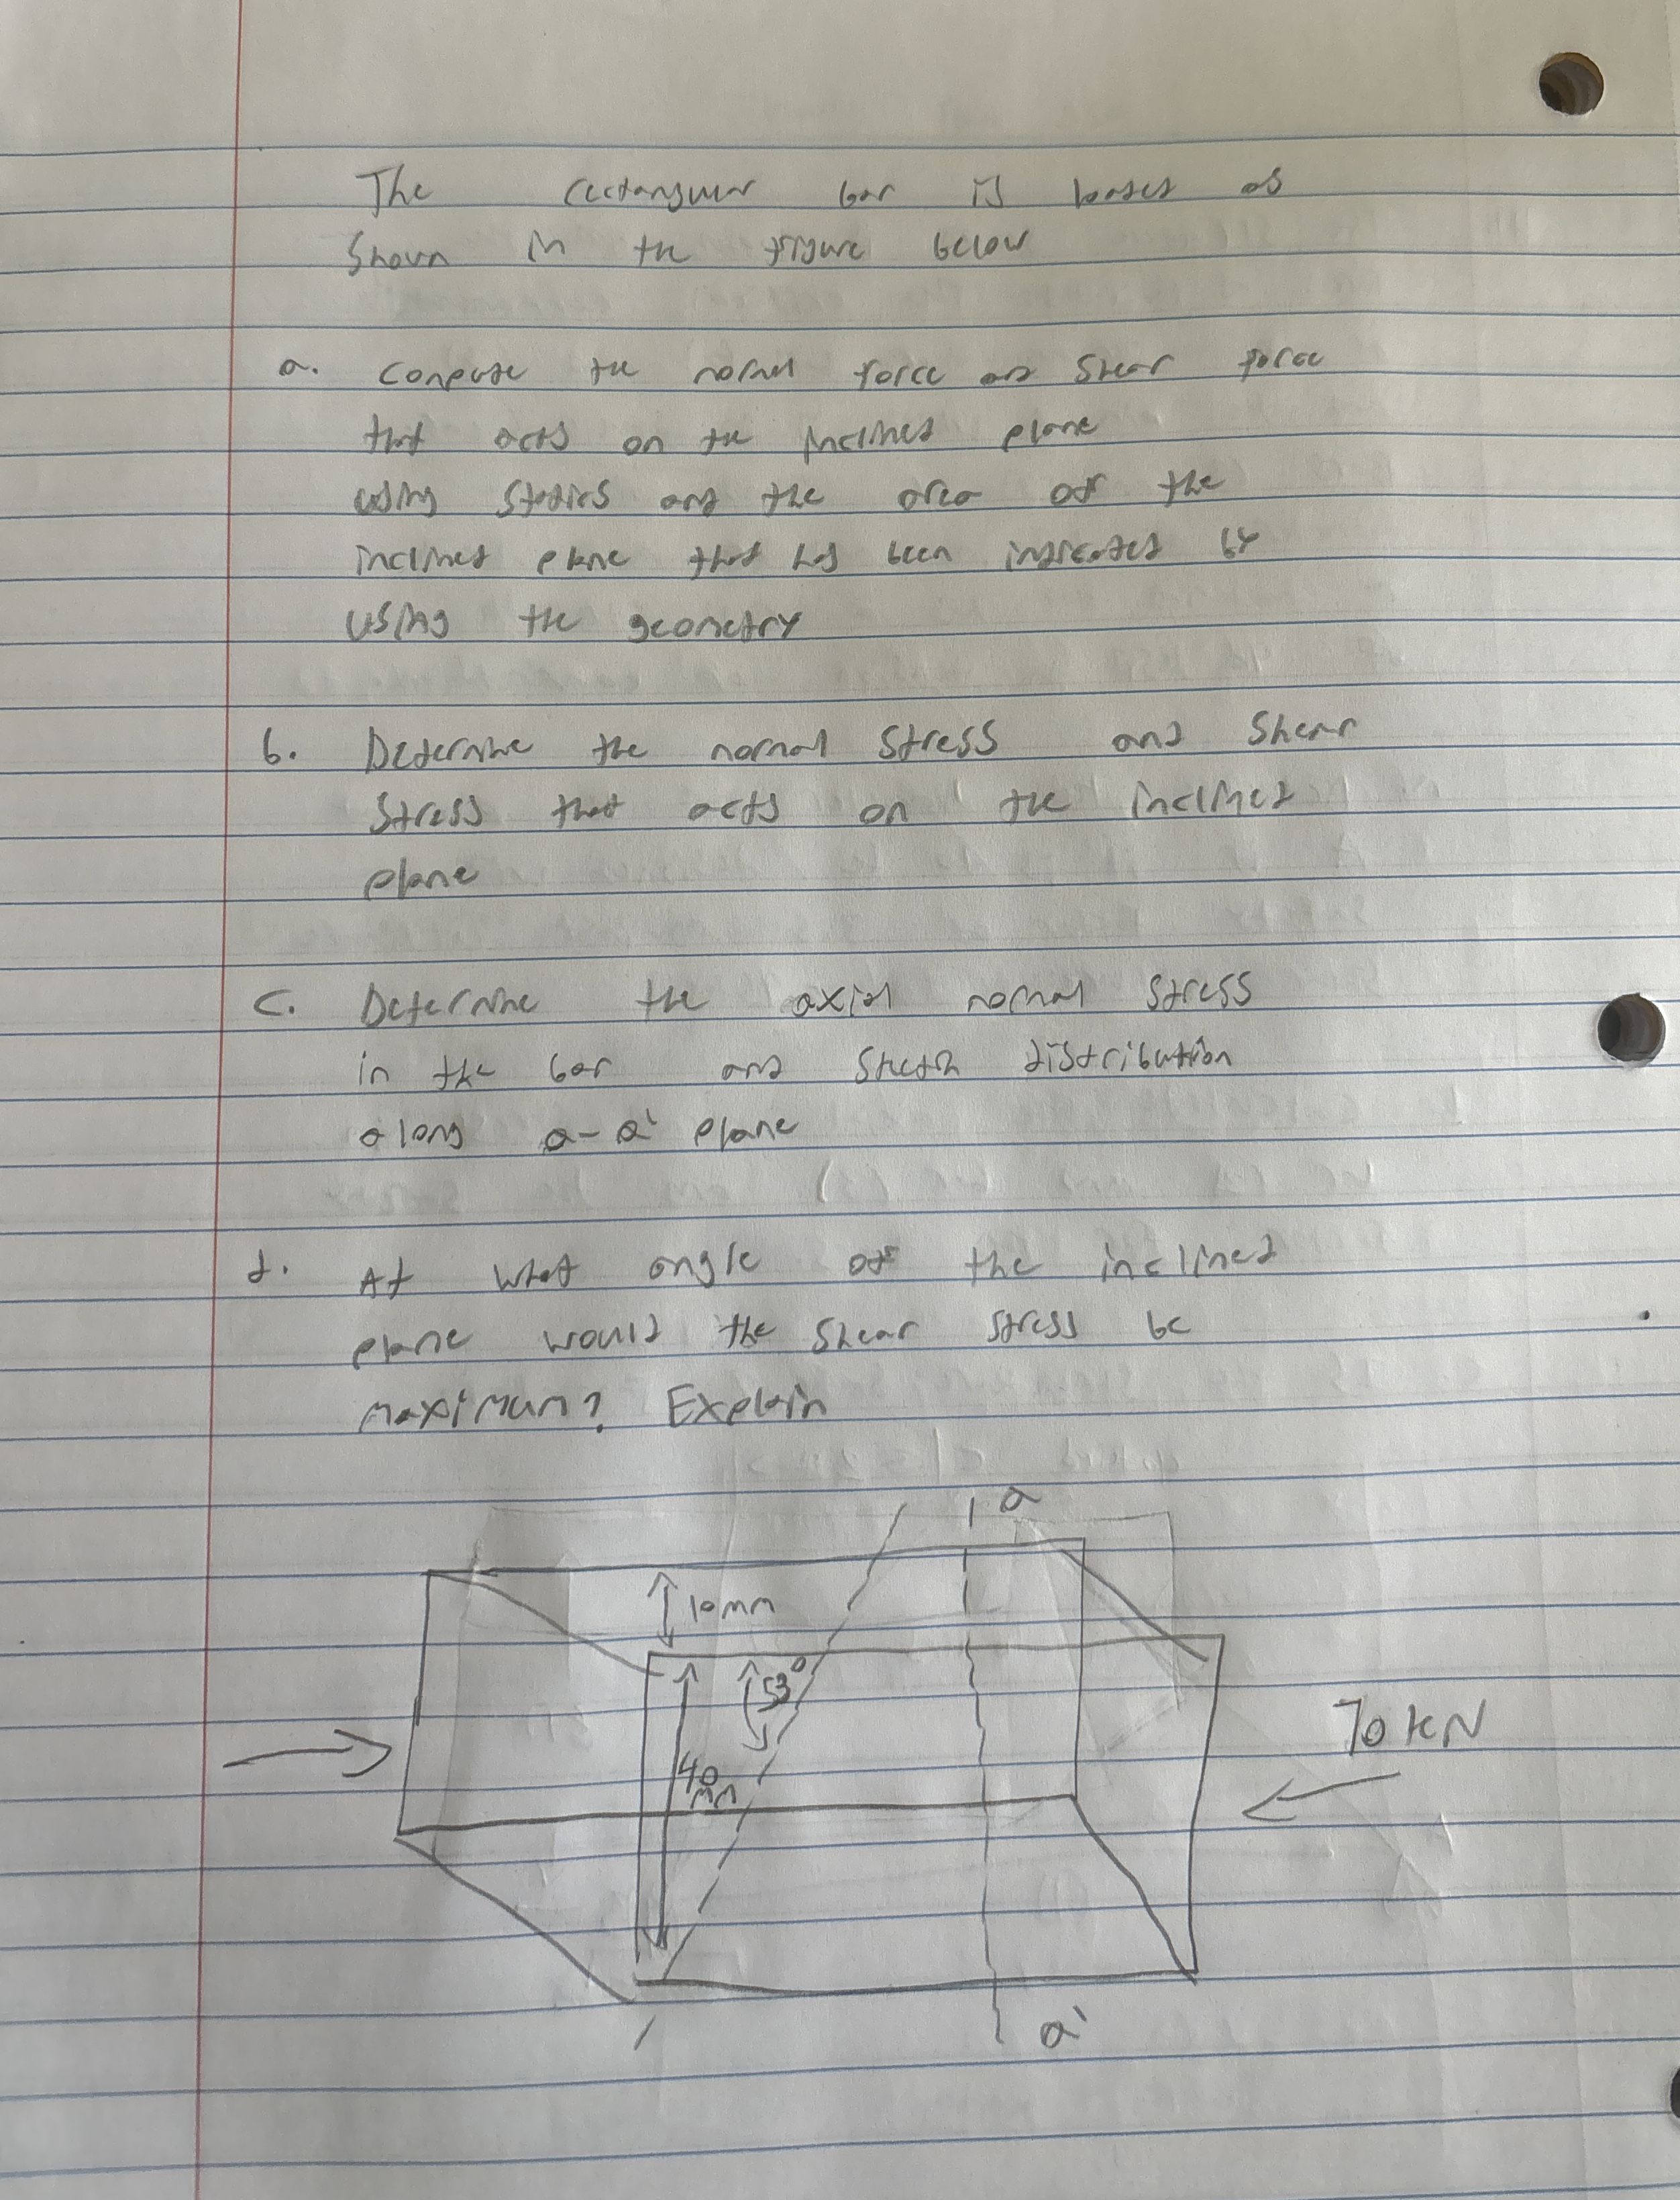 The rectangular bar is loaded as
shown in the figure below
a. compute the normal force and shear force
that acts on the inclined plane
using statics and the area of the
inclined plane that has been indicated by
using the geometry
b. Determine the normal stress and shear
stress that acts on the inclined
plane
c. Determine the axial normal stress
in the bar and sketch distribution
along a-a' plane
d. At what angle of the inclined
plane would the shear stress be
maximum? Explain
a
10mm
53°
70 kN
40
mm
a'